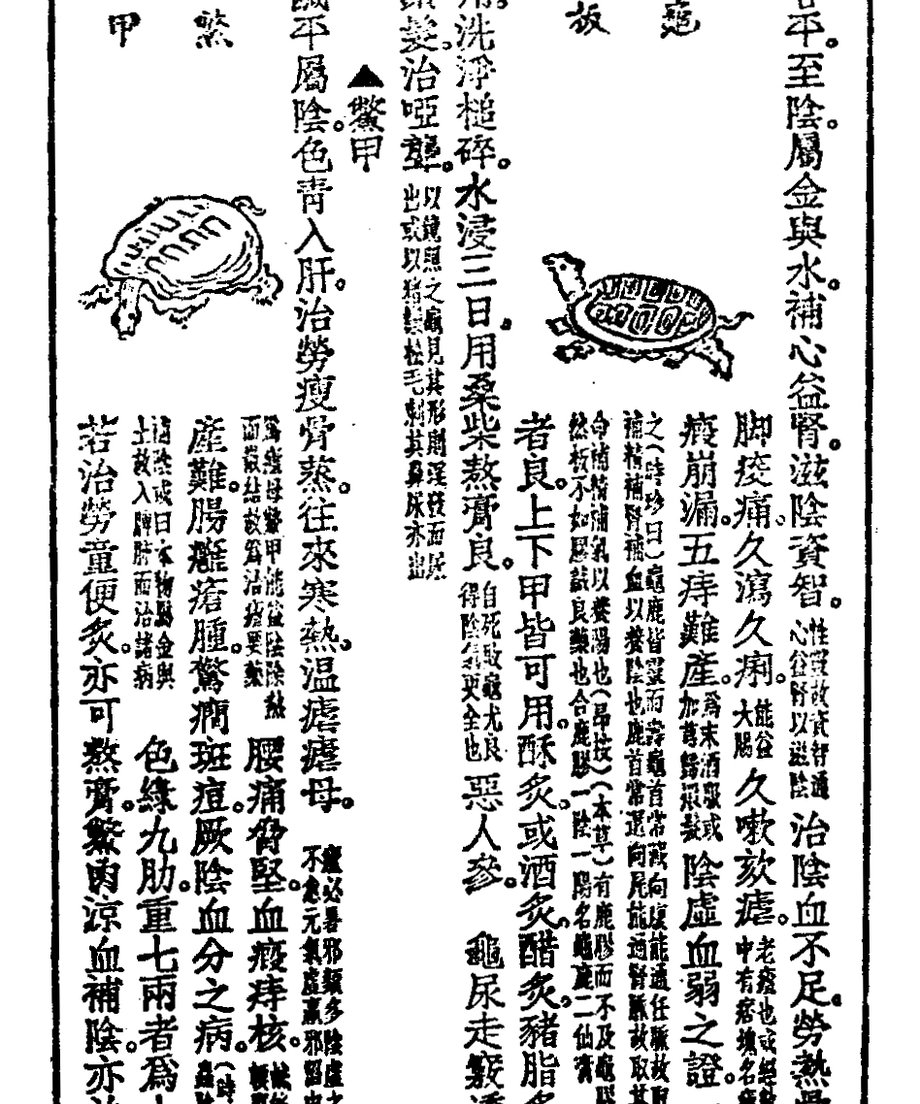 龜板
平。至陰。屬金與水。補心益腎。滋陰資智。性靈故資智通心益腎以滋陰治陰血不足。勞熱
脚痠痛。久瀉久痢。能益大腸久嗽欬瘧。老瘧也或經中有痞塊名
癥崩漏。五痔難產。爲末酒服或加芎歸煅髮陰虛血弱之證。
之(時珍曰)龜鹿皆靈而壽龜首常藏向腹能通任脈故取補精補腎補血以養陰也鹿首常還向尾能通腎脈故取其
命補精補氣以養陽也(昂按)(本草)有鹿膠而不及龜膠然板不如膠誠良藥也合鹿膠一陰一陽名龜鹿二仙膏
者良。上下甲皆可用。酥炙。或酒炙。醋炙。豬脂
洗淨槌碎。水浸三日。用桑柴熬膏良。自死敗龜尤良得陰氣更全也惡人參。龜尿走竅
髮。治啞聾。以鏡照之龜見其形則淫發而尿出或以豬鬃松毛刺其鼻尿亦出
▲鱉甲
鱉甲
平屬陰。色青入肝。治勞瘦骨蒸。往來寒熱。温瘧瘧母。瘧必暑邪類多陰虛之不愈元氣虛羸邪留
爲瘧母鱉甲能益陰除熱而散結故爲治瘧要藥腰痛脅堅。血瘕痔核。
產難。腸癰瘡腫。驚癇斑痘。厥陰血分之病。(時
補陰或曰本物屬金與土故入脾肺而治諸病色綠九肋。重七兩者爲
若治勞童便炙。亦可熬膏。鱉肉涼血補陰。亦